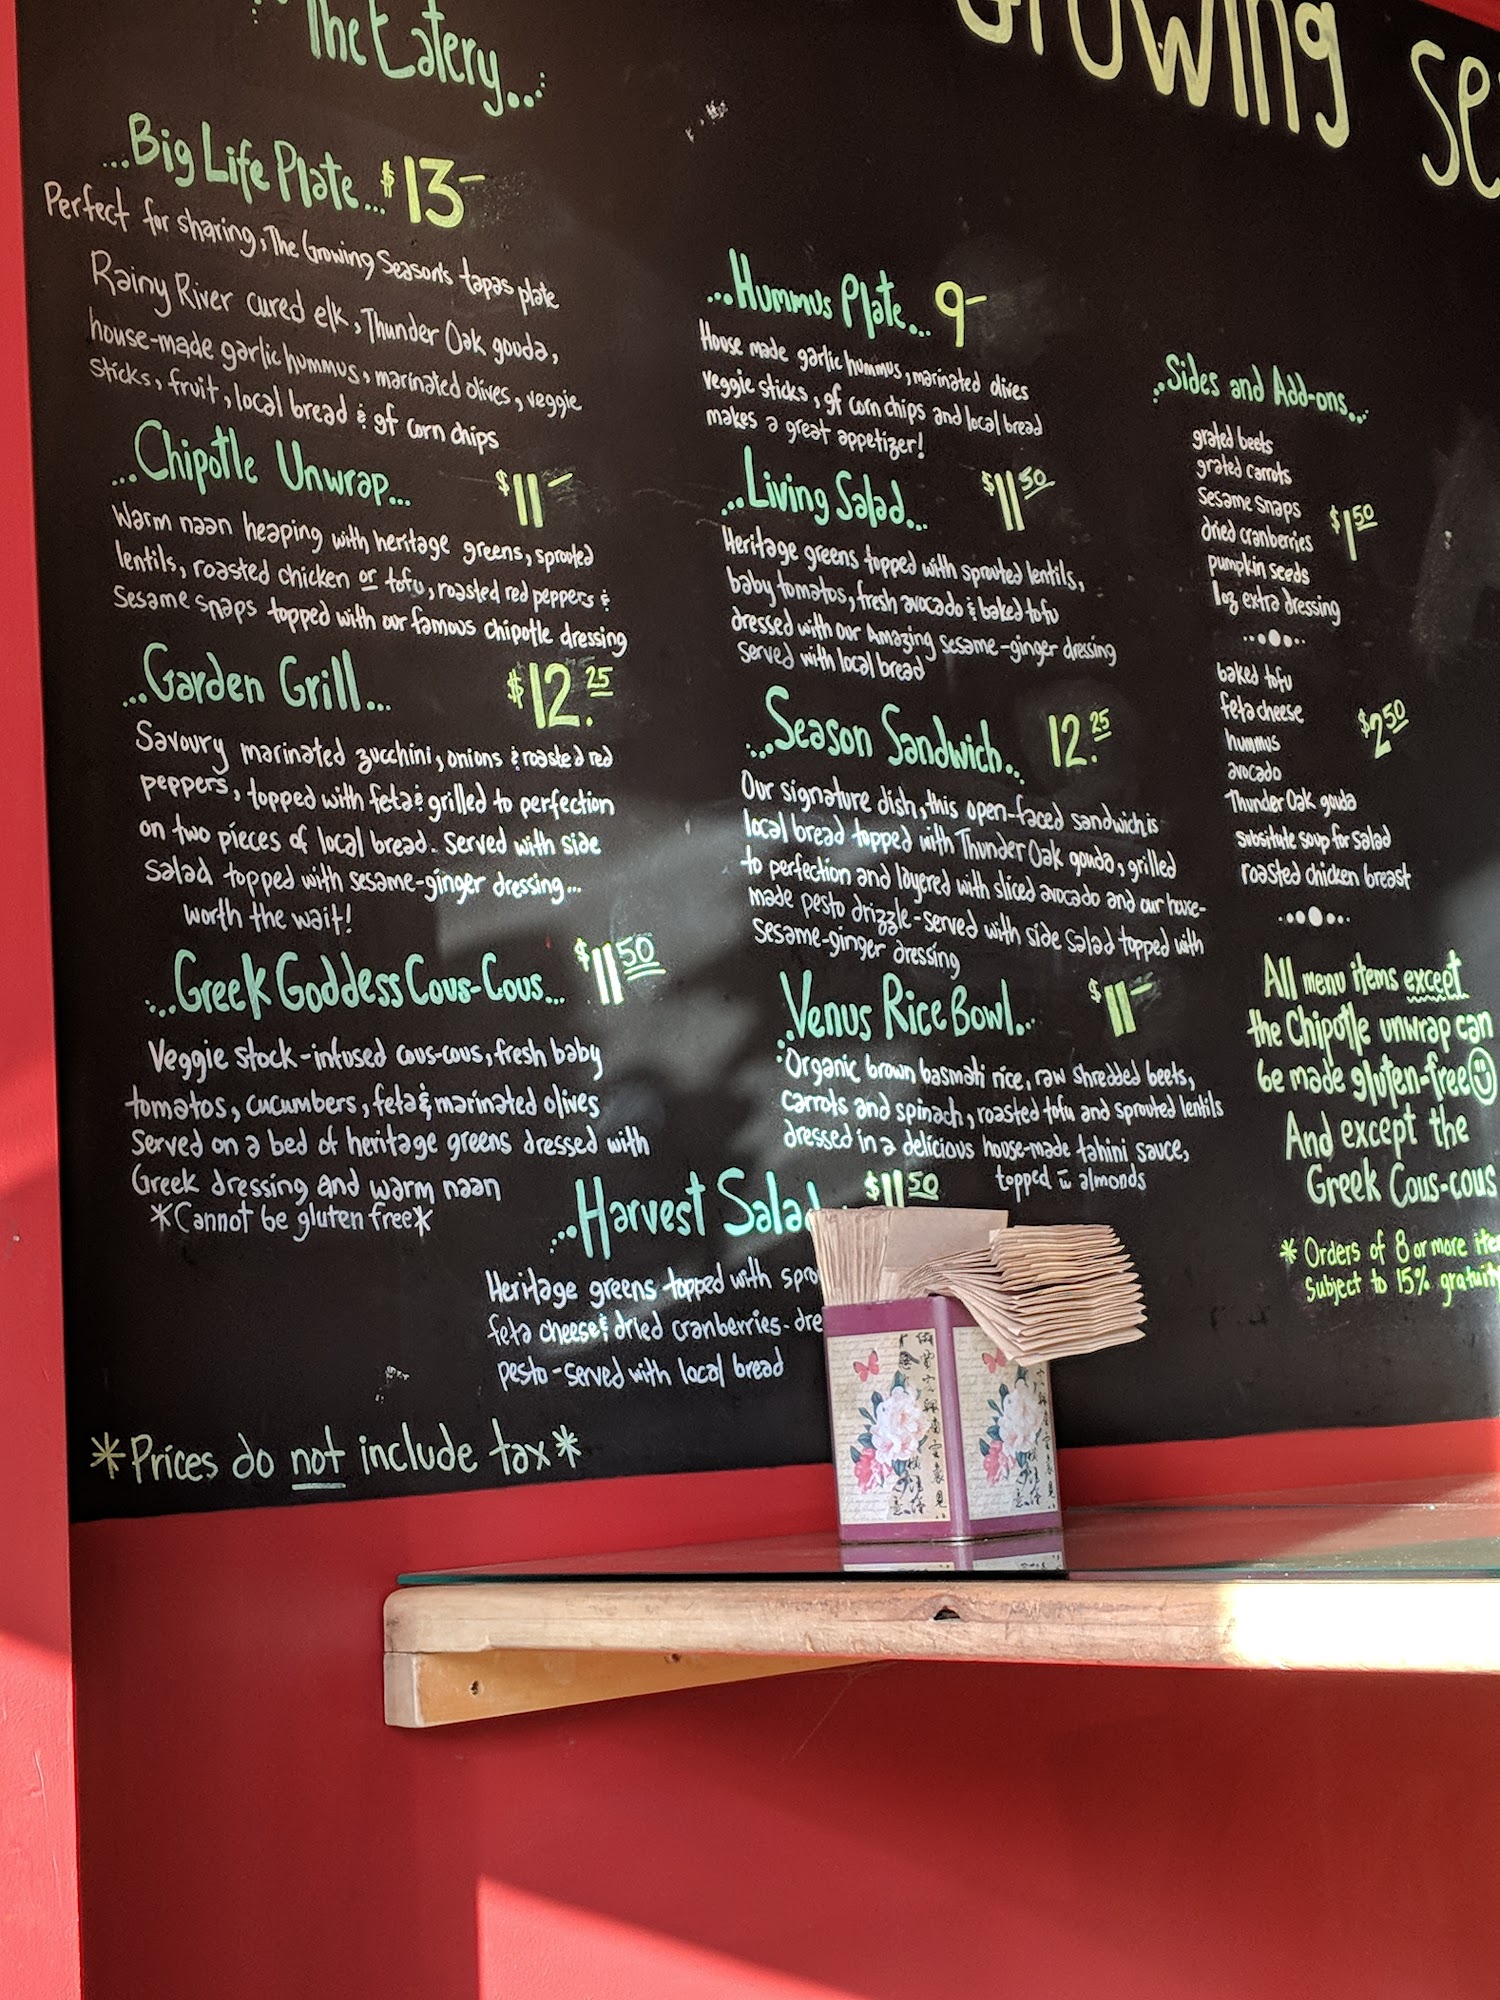 The Eatery...
Growing
...Big Life Plate... $13-
Perfect for sharing, The Growing Season's tapas plate
Rainy River cured elk, Thunder Oak gouda,
house-made garlic hummus, marinated olives, veggie
sticks, fruit, local bread & gf corn chips
...Chipotle Unwrap... $11-
Warm naan heaping with heritage greens, sprouted
lentils, roasted chicken or tofu, roasted red peppers &
sesame snaps topped with our famous chipotle dressing
...Garden Grill... $12.25
Savoury marinated zucchini, onions & roasted red
peppers, topped with feta & grilled to perfection
on two pieces of local bread. Served with side
salad topped with sesame-ginger dressing...
worth the wait!
...Greek Goddess Cous-Cous... $11 50
Veggie stock-infused cous-cous, fresh baby
tomatos, cucumbers, feta & marinated olives
Served on a bed of heritage greens dressed with
Greek dressing and warm naan
*Cannot be gluten free*
...Hummus Plate... 9-
House made garlic hummus, marinated olives
veggie sticks, gf corn chips and local bread
makes a great appetizer!
...Living Salad... $11 50
Heritage greens topped with sprouted lentils,
baby tomatos, fresh avocado & baked tofu
dressed with our Amazing sesame-ginger dressing
served with local bread
...Season Sandwich... 12.25
Our signature dish, this open-faced sandwich is
local bread topped with Thunder Oak gouda, grilled
to perfection and layered with sliced avocado and our house-
made pesto drizzle-served with side salad topped with
sesame-ginger dressing
Venus Rice Bowl... $11-
Organic brown basmati rice, raw shredded beets,
carrots and spinach, roasted tofu and sprouted lentils
dressed in a delicious house-made tahini sauce,
topped c̄ almonds
...Harvest Salad $11 50
Heritage greens topped with
feta cheese & dried cranberries-
pesto-served with local bread
*Prices do not include tax*
...Sides and Add-ons...
grated beets
grated carrots
sesame snaps
dried cranberries $1 50
pumpkin seeds
1oz extra dressing
baked tofu
feta cheese
hummus $2 50
avocado
Thunder Oak gouda
substitute soup for salad
roasted chicken breast
All menu items except
the Chipotle unwrap can
be made gluten-free
And except the
Greek Cous-cous
* Orders of 8 or more
Subject to 15%